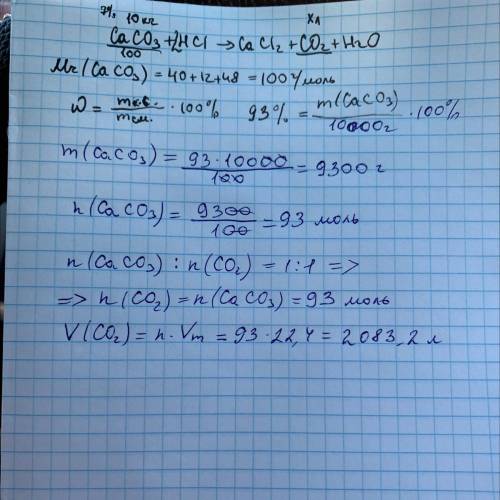 7% 10 кг X л
CaCO3 + 2HCl → CaCl2 + CO2 + H2O
100
Mr(CaCO3) = 40+12+48 = 100 г/моль
ω = mк.в. / mсм. · 100% 93% = m(CaCO3) / 10000г · 100%
m(CaCO3) = 93·10000 / 100 = 9300 г
n(CaCO3) = 9300 / 100 = 93 моль
n(CaCO3) : n(CO2) = 1:1 =>
=> n(CO2) = n(CaCO3) = 93 моль
V(CO2) = n·Vm = 93·22,4 = 2083,2 л